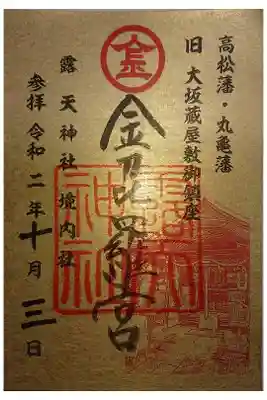 高松藩・丸亀藩
旧 大坂蔵屋敷御鎮座
金
金刀比羅宮
露天神社境内社
参拝 令和二年十月三日